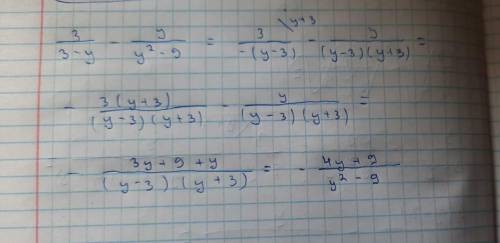 3/(3-y) - y/(y²-9) = 3\y+3/(-(y-3)) - y/((y-3)(y+3)) =
- 3(y+3)/((y-3)(y+3)) - y/((y-3)(y+3)) =
- (3y+9+y)/((y-3)(y+3)) = - (4y+9)/(y²-9)